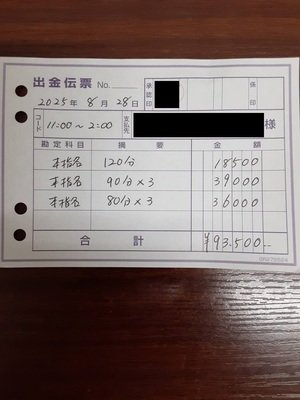 出金伝票 No.
承認印 係印
2025年 8月 28日
コード 11:00〜2:00 支払先 様
勘定科目 摘要 金額
本指名 120分 18500
本指名 90分×3 39000
本指名 80分×3 36000
合計 ¥93,500-